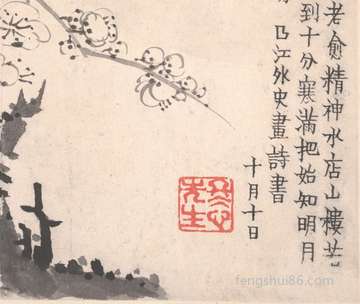 老愈精神水店山樓若
到十分寒滿把始知明月
乃江外史畫詩書
十月十日
先生
fengshui86.com